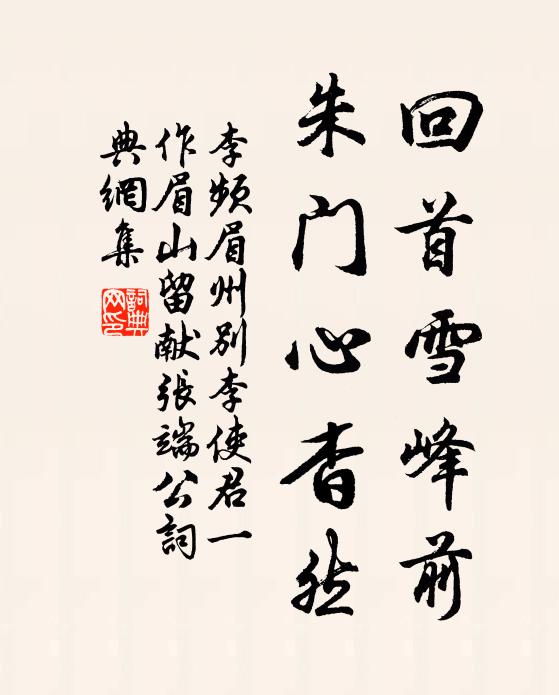 回首雪峰前
朱门心杳然
李频眉州别李使君一
作眉山留献張端公詞
典網集
詞典
网印